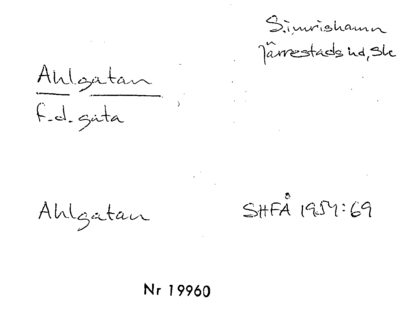 Simrishamn
Järrestads hd, Sk
Ahlgatan
f.d. gata
Ahlgatan SHFÅ 1954:69
Nr 19960